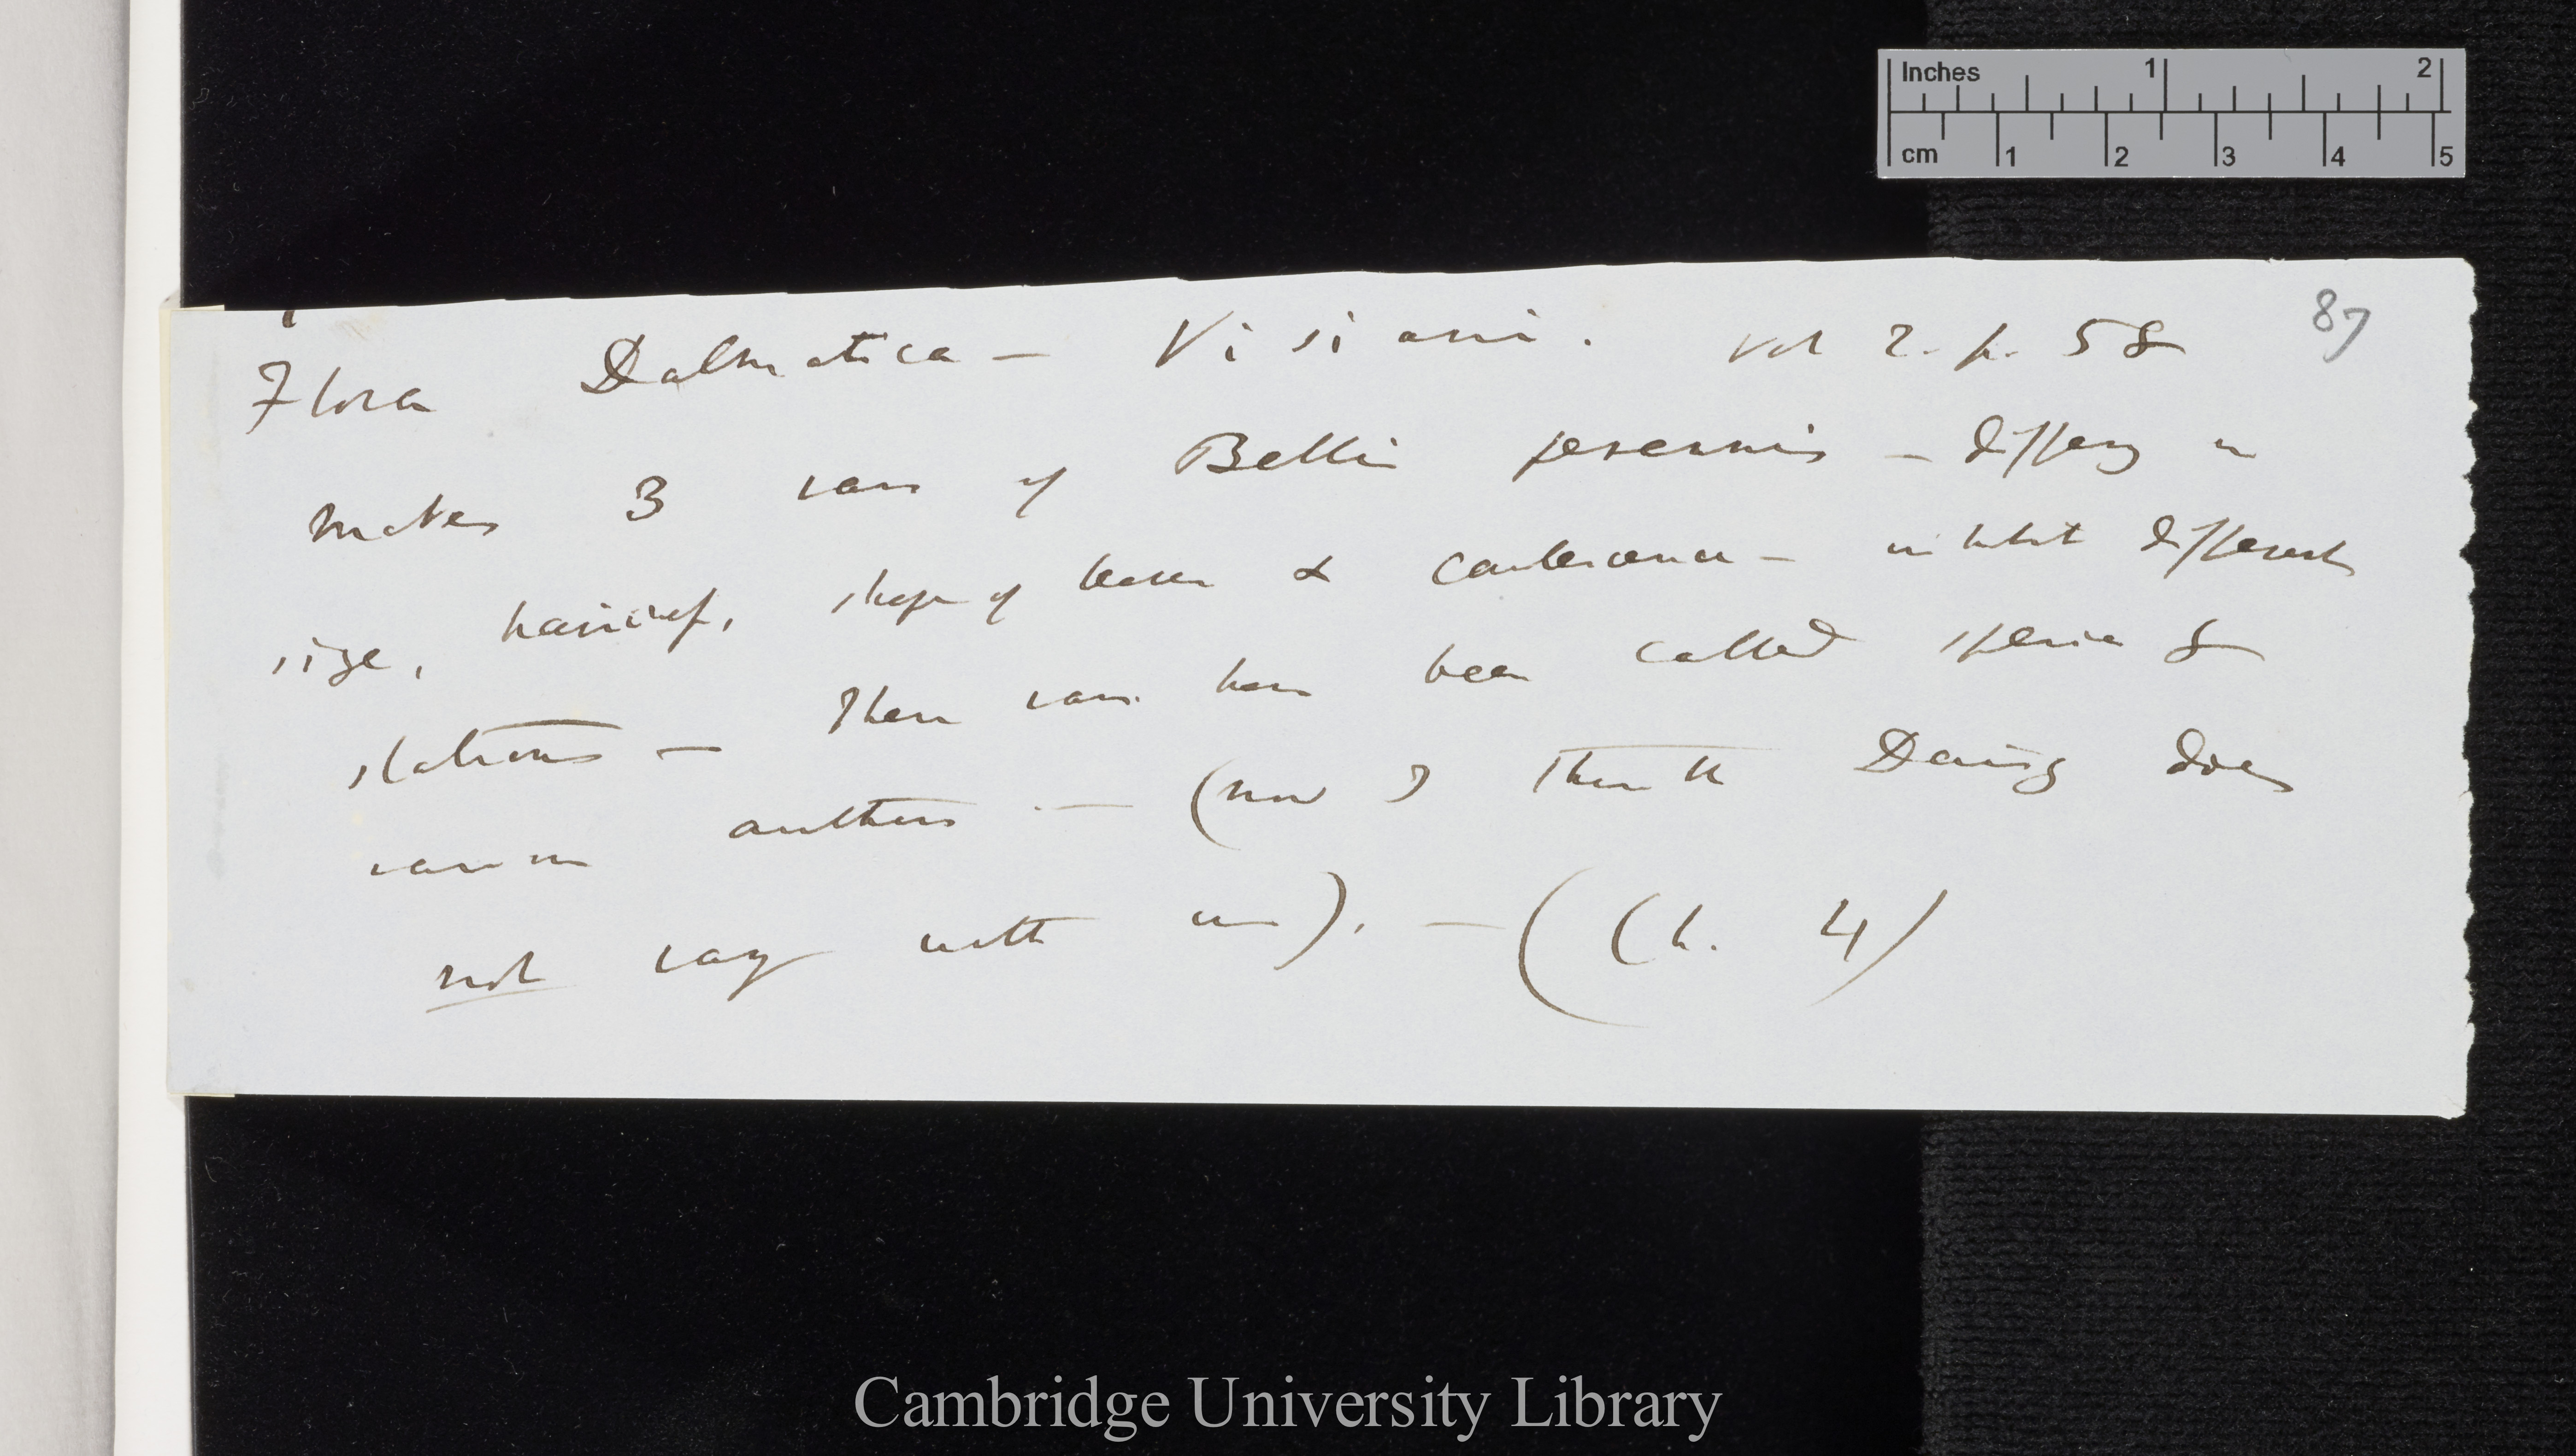 Inches 1 2
cm 1 2 3 4 5
87
Flora Dalmatica — Visiani. vol 2. p. 58
makes 3 vars of Bellis perennis — differing in
size, hairiness, shape of leaves & — inhabit different
stations — These vars. have been called species by
various authors — (now I think the Daisy does
not vary with us). — (Ch. 4)
Cambridge University Library